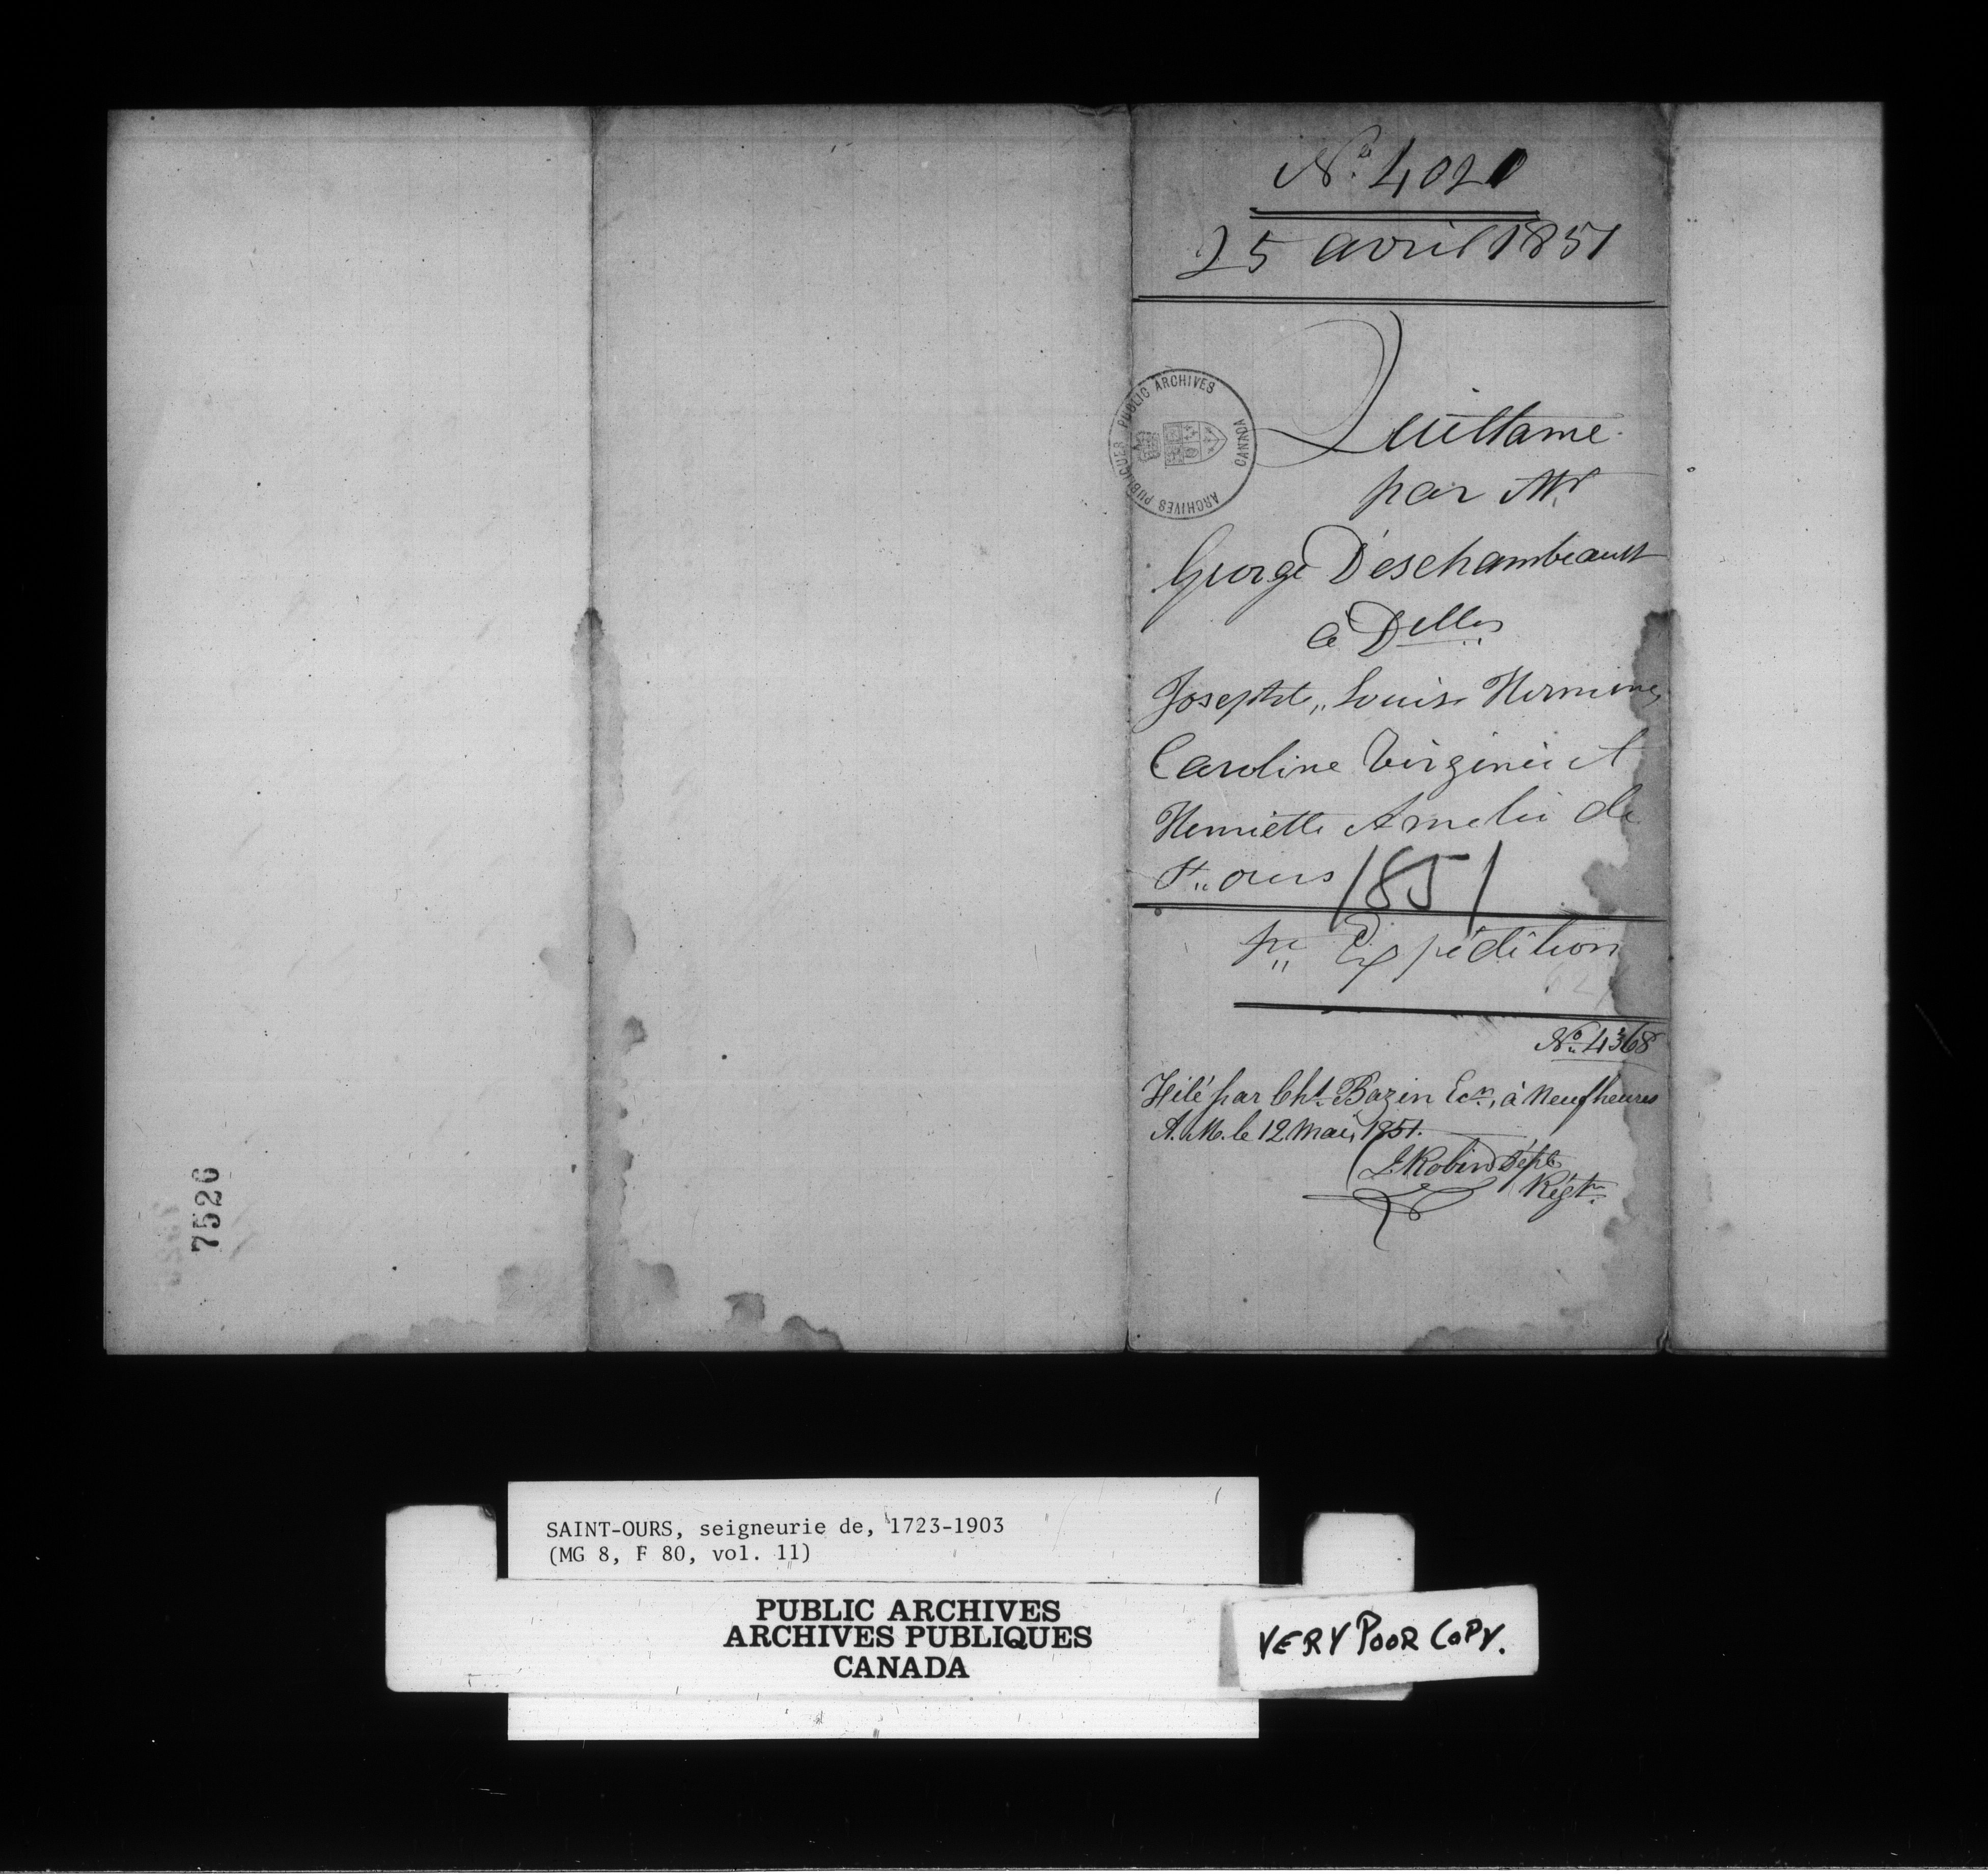 No. 4020
25 avril 1851
Quittance
par Mr
George Deschambeault
à Delles
Josephte, Louise Hermine,
Caroline Virginie et
Henriette Amelie de
St. ours 1851
pre Expédition
No. 4368
Filé par Chs. Bazin Ecr., à Neuf heures
A.M. le 12 Mai, 1851.
L Robin Dépté
Régtr.
PUBLIC ARCHIVES
CANADA
ARCHIVES PUBLIQUES
7526
SAINT-OURS, seigneurie de, 1723-1903
(MG 8, F 80, vol. 11)
PUBLIC ARCHIVES
ARCHIVES PUBLIQUES
CANADA
VERY POOR COPY.